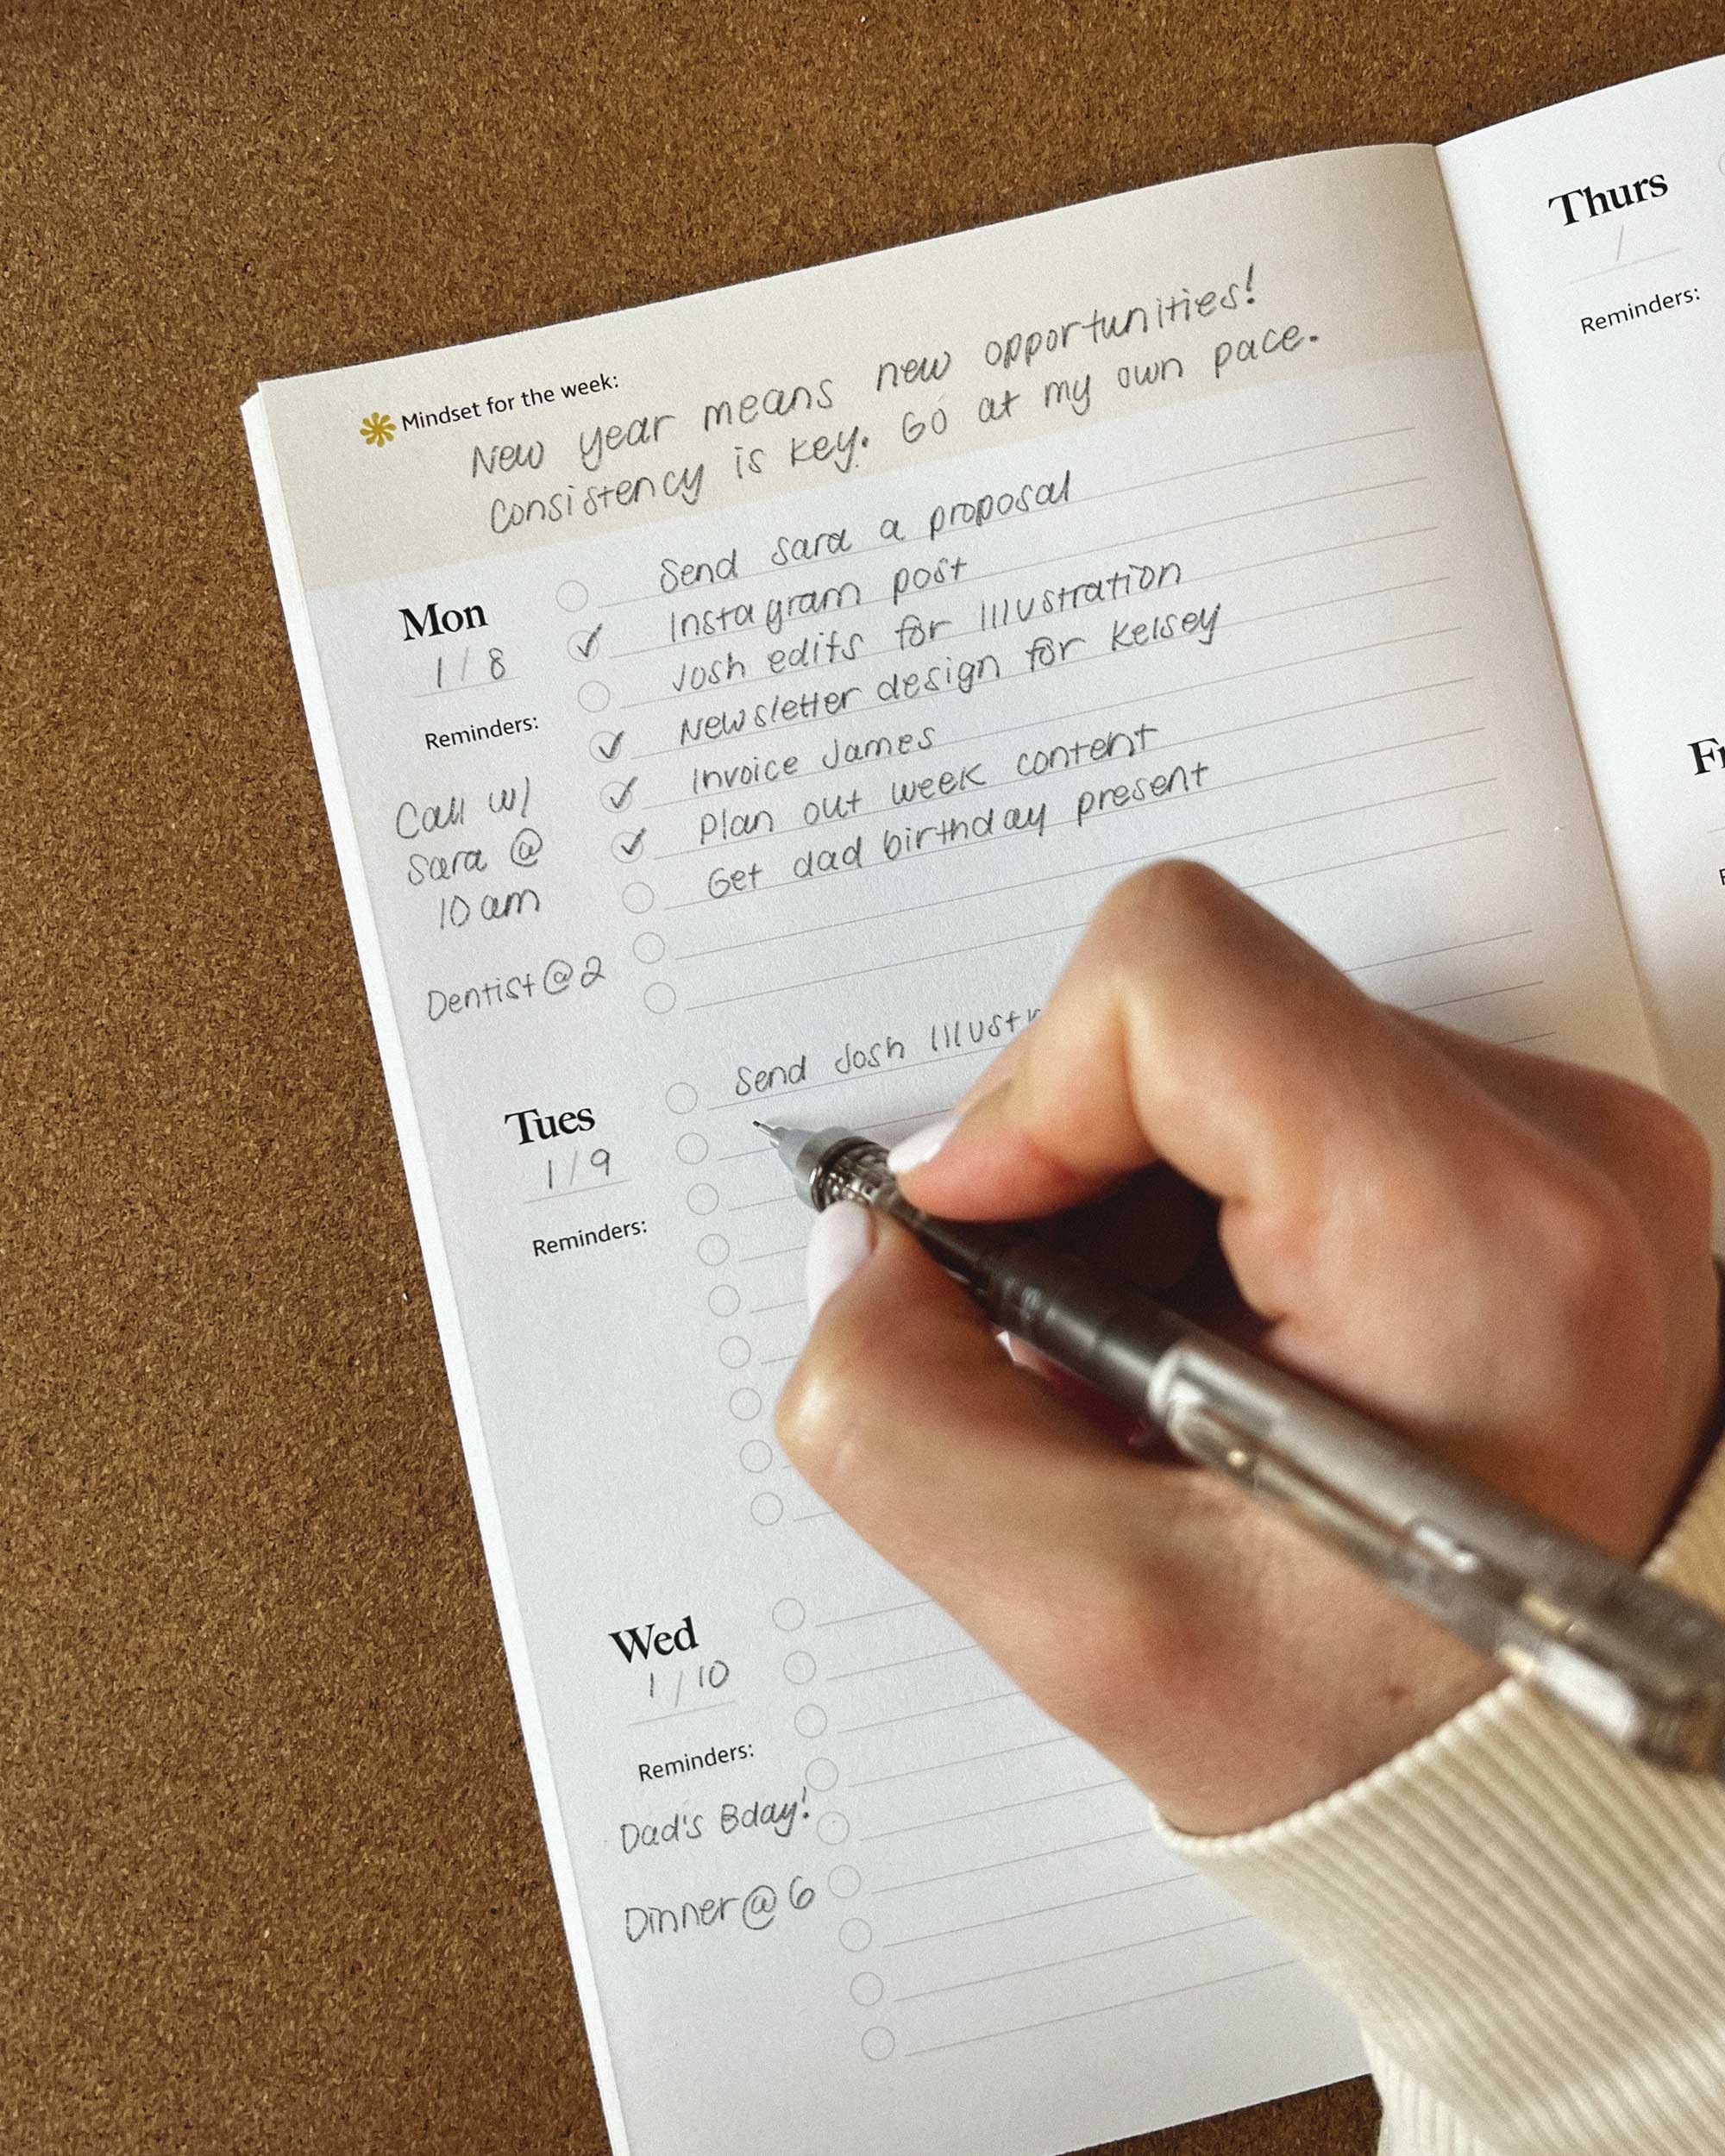 Mindset for the week:
New year means new opportunities!
Consistency is key. Go at my own pace.
Mon
1/8
Reminders:
Call w/
Sara @
10 am
Dentist @ 2
Send Sara a proposal
Instagram post
Josh edits for illustration
Newsletter design for Kelsey
Invoice James
Plan out week content
Get dad birthday present
Tues
1/9
Reminders:
Send Josh
Wed
1/10
Reminders:
Dad's Bday!
Dinner @ 6
Thurs
/
Reminders: